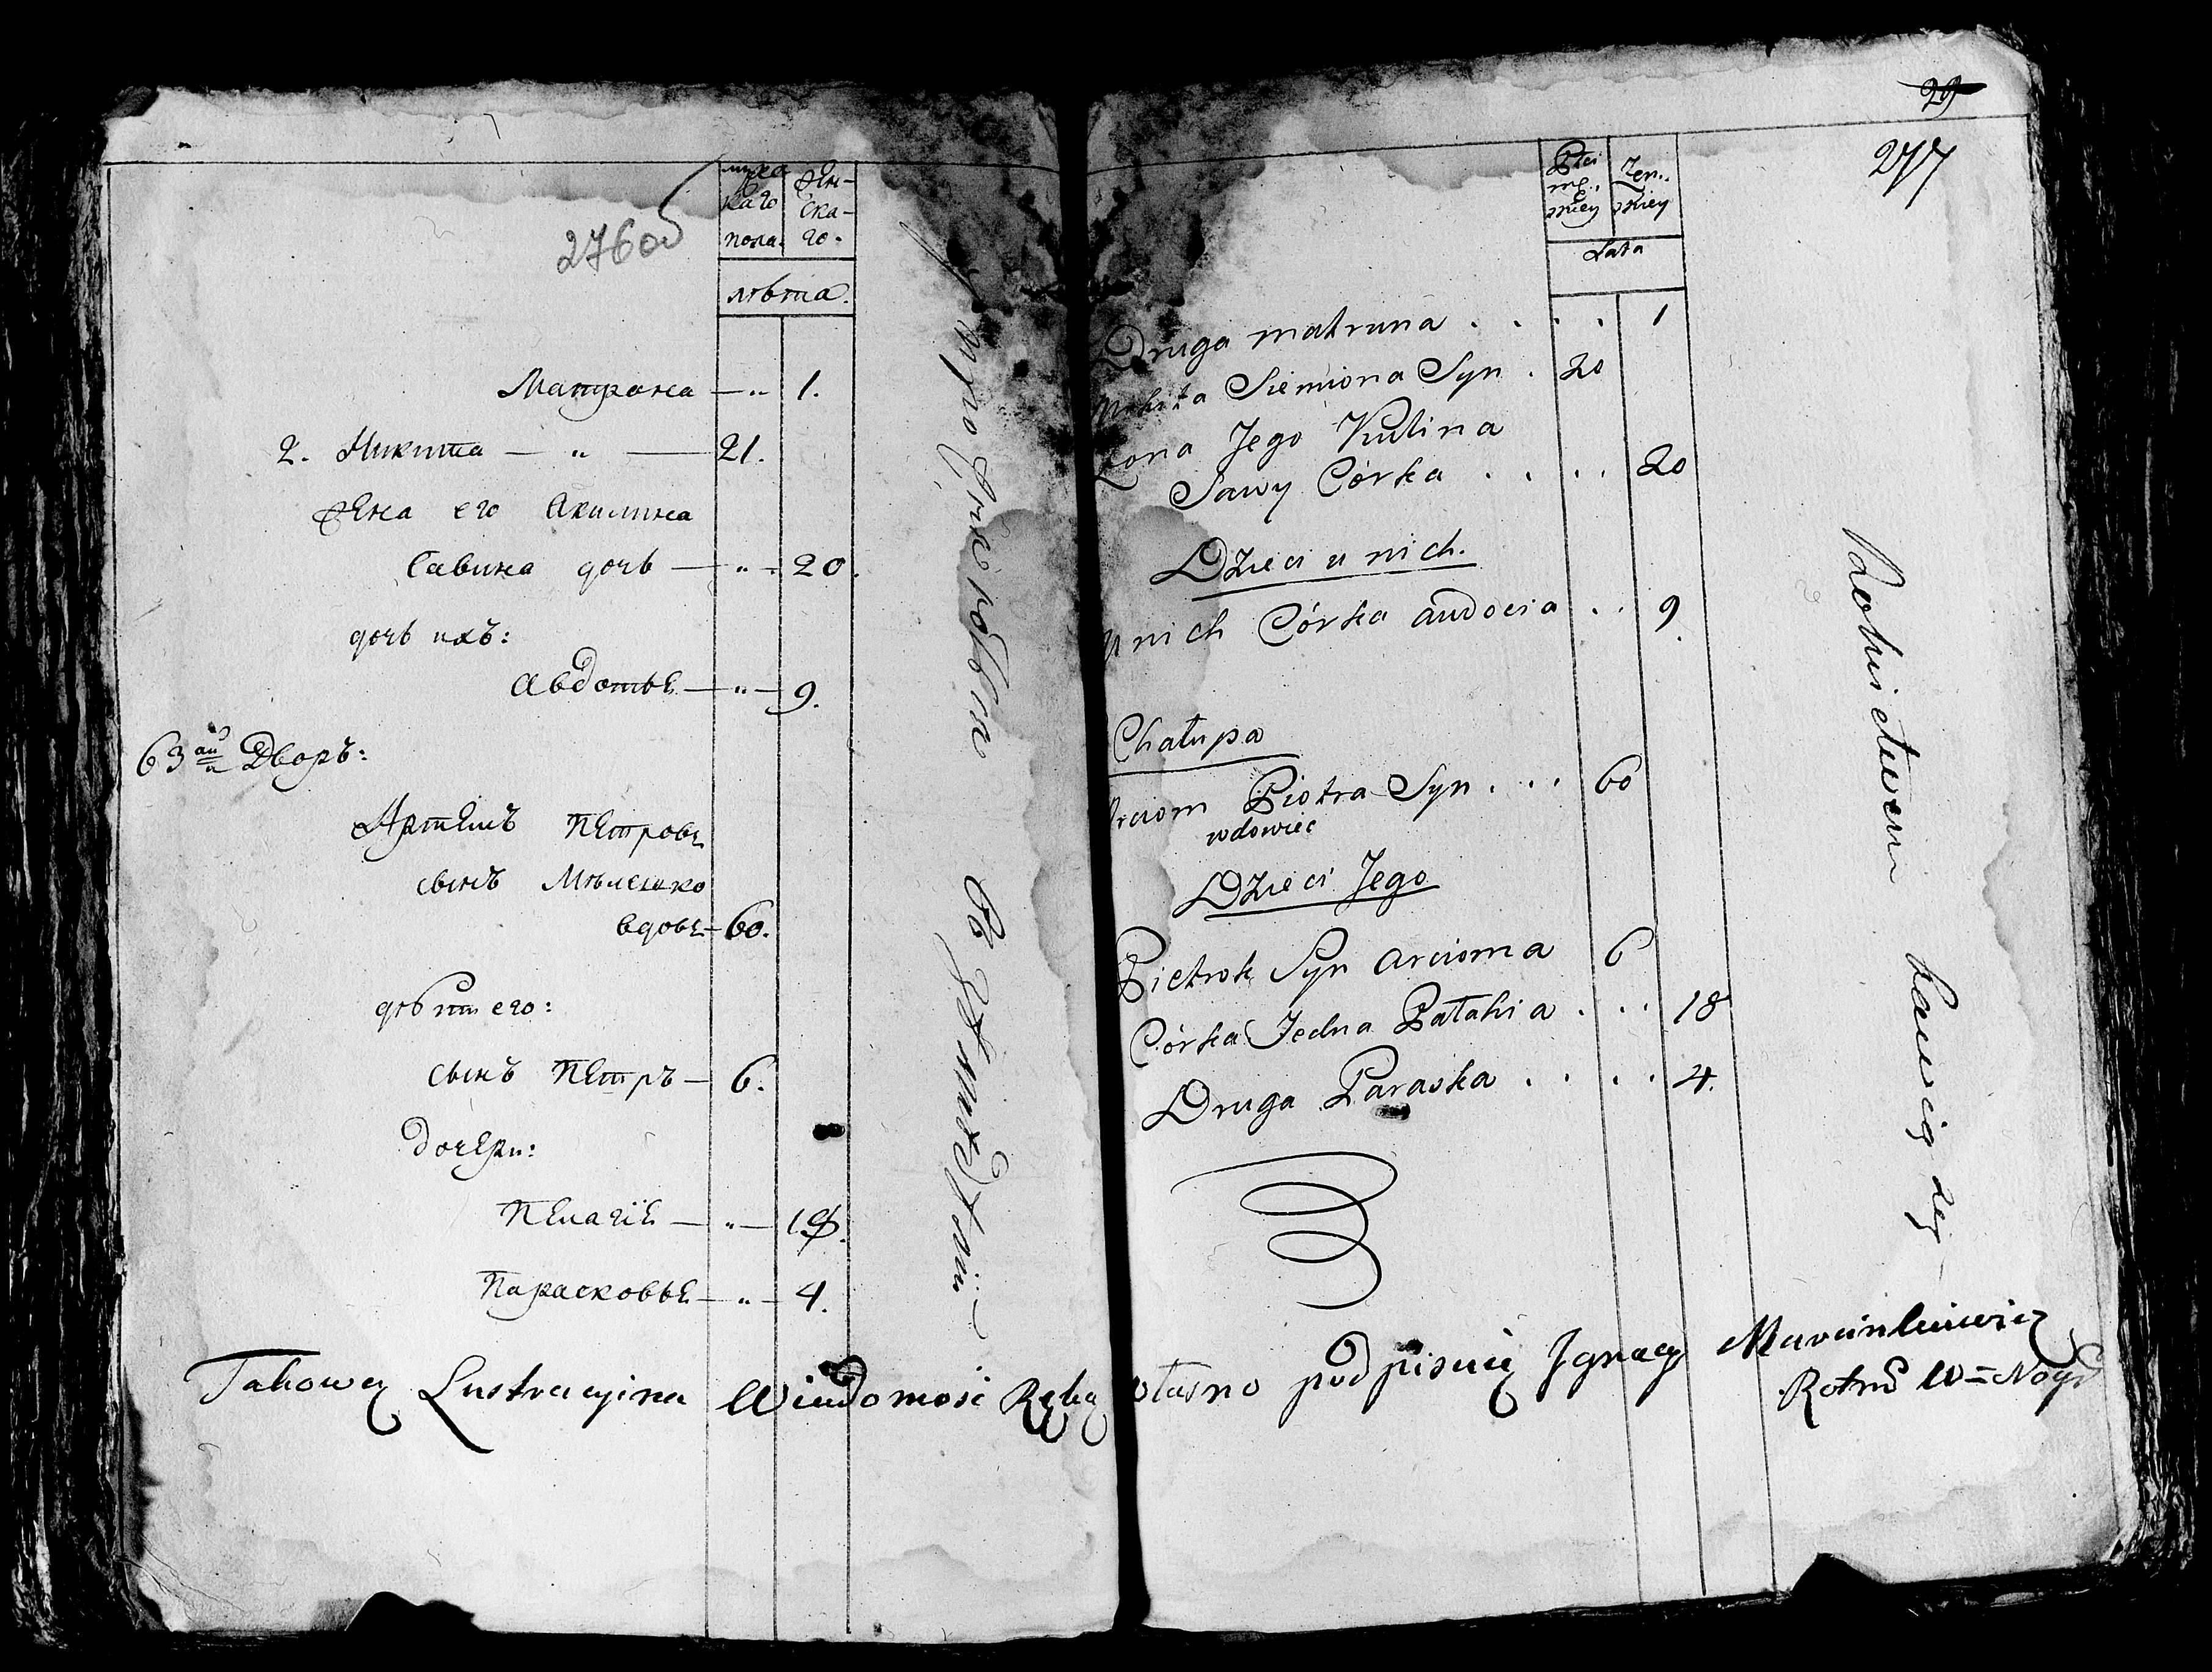 276об
мужес
каго
пола.
жен-
ска-
го.
лѣта.
Матрона — „ 1.
2. Никита — „ — 21.
Жена его Акилина
Савина дочь — „ - 20.
дочь ихъ:
Авдотья — „ — 9.
63ай Дворъ:
Артемъ Петровъ
сынъ
вдовъ — 60.
дѣти его:
сынъ Петръ — 6.
дочери:
Пелагія — „ — 18.
Парасковья — „ — 4.
29
277
Płci
męz.
skiey
Zen..
skiey
Lata
Druga matruna . . . . 1
Mikita Siemiona Syn . 20
Zona Jego Kulina
Sawy Córka . . . . 20
Dzieci u nich.
U nich Córka audocia . . 9.
Chałupa
Arciom Piotra Syn . . . 60
wdowiec
Dzieci Jego
Pietrok Syn arcioma 6
Córka Jedna Pałahia . . . 18
Druga Paraska . . . . 4.
Takową Lustracyina Wiadomość Ręką własno podpisuię Ignacy Marcinkiewicz
Rotm